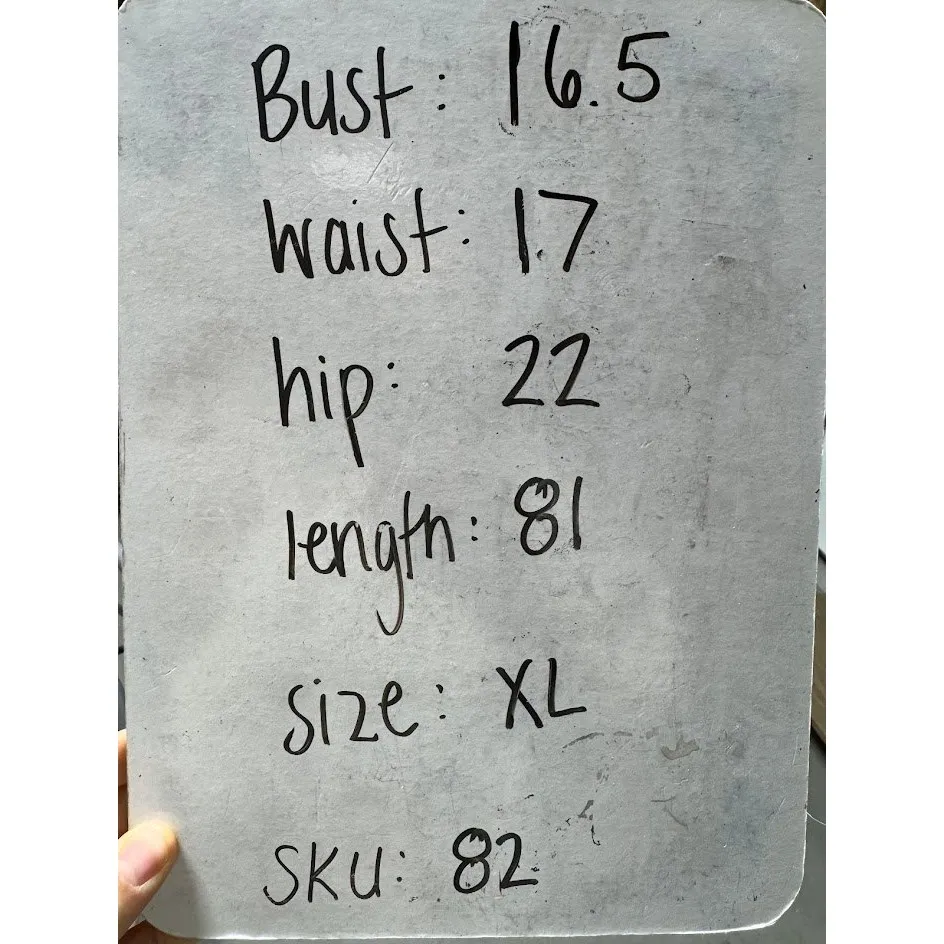 Bust: 16.5
waist: 17
hip: 22
length: 81
size: XL
SKU: 82